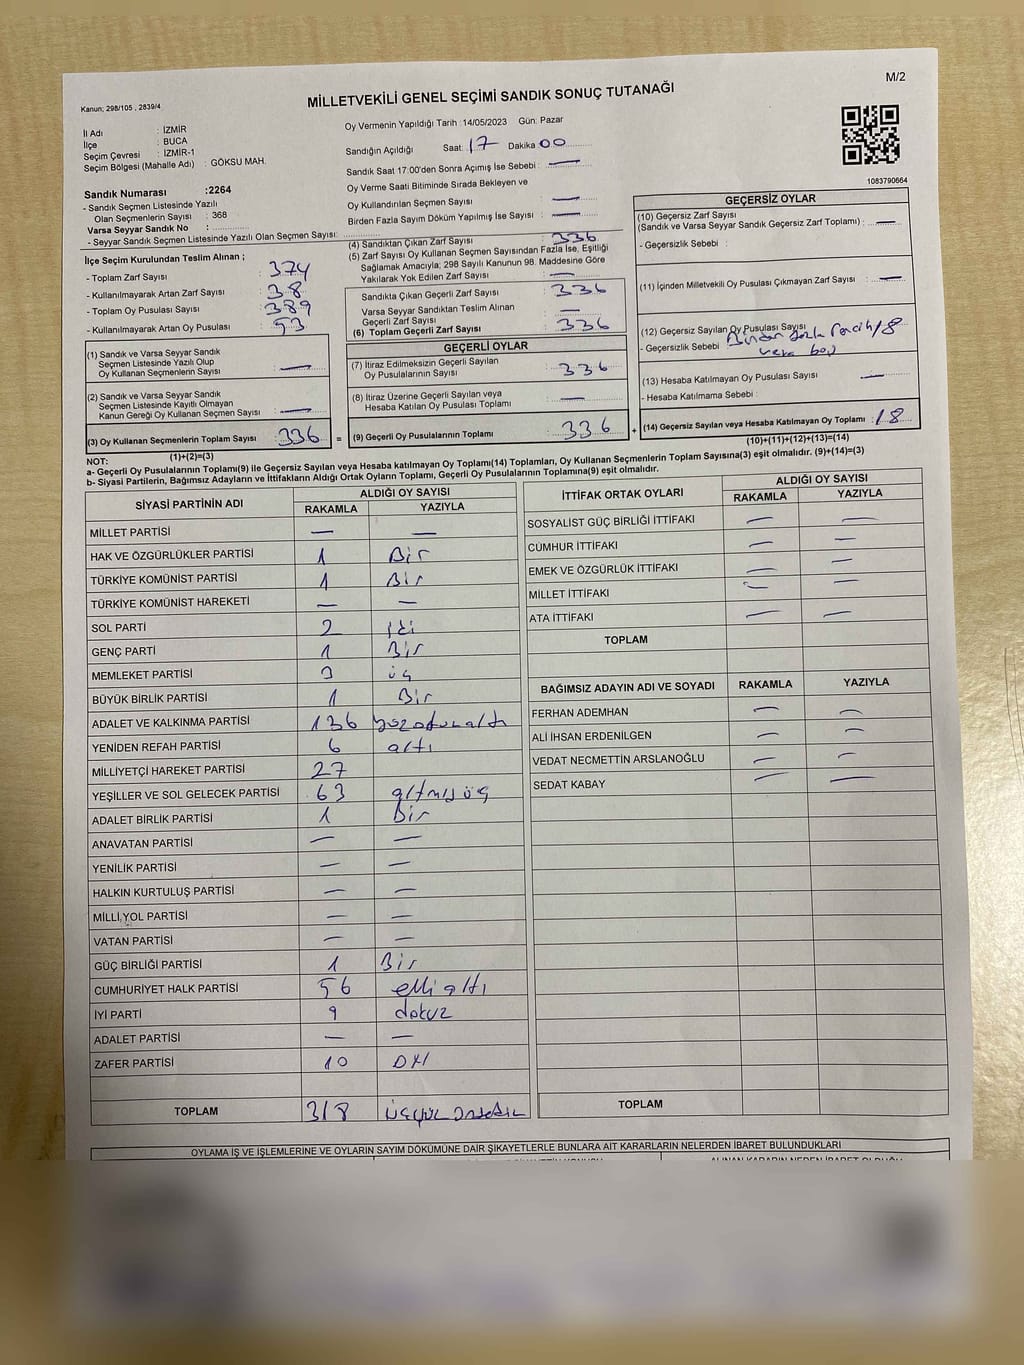 M/2
Kanun; 298/105 , 2839/4
MİLLETVEKİLİ GENEL SEÇİMİ SANDIK SONUÇ TUTANAĞI
İl Adı : İZMİR
İlçe : BUCA
Seçim Çevresi : İZMİR-1
Seçim Bölgesi (Mahalle Adı) : GÖKSU MAH.
Sandık Numarası :2264
- Sandık Seçmen Listesinde Yazılı
Olan Seçmenlerin Sayısı : 368
Varsa Seyyar Sandık No :
- Seyyar Sandık Seçmen Listesinde Yazılı Olan Seçmen Sayısı:
İlçe Seçim Kurulundan Teslim Alınan ;
- Toplam Zarf Sayısı : 374
- Kullanılmayarak Artan Zarf Sayısı : 38
- Toplam Oy Pusulası Sayısı : 389
- Kullanılmayarak Artan Oy Pusulası : 53
(1) Sandık ve Varsa Seyyar Sandık
Seçmen Listesinde Yazılı Olup
Oy Kullanan Seçmenlerin Sayısı : —
(2) Sandık ve Varsa Seyyar Sandık
Seçmen Listesinde Kayıtlı Olmayan
Kanun Gereği Oy Kullanan Seçmen Sayısı : —
(3) Oy Kullanan Seçmenlerin Toplam Sayısı : 336 =
(1)+(2)=(3)
Oy Vermenin Yapıldığı Tarih :14/05/2023 Gün: Pazar
Sandığın Açıldığı Saat: 17 Dakika 00
Sandık Saat 17:00'den Sonra Açımış İse Sebebi : —
Oy Verme Saati Bitiminde Sırada Bekleyen ve
Oy Kullandırılan Seçmen Sayısı : —
Birden Fazla Sayım Döküm Yapılmış İse Sayısı : —
(4) Sandıktan Çıkan Zarf Sayısı : 336
(5) Zarf Sayısı Oy Kullanan Seçmen Sayısından Fazla İse, Eşitliği
Sağlamak Amacıyla; 298 Sayılı Kanunun 98. Maddesine Göre
Yakılarak Yok Edilen Zarf Sayısı : —
Sandıkta Çıkan Geçerli Zarf Sayısı : 336
Varsa Seyyar Sandıktan Teslim Alınan
Geçerli Zarf Sayısı : —
(6) Toplam Geçerli Zarf Sayısı : 336
GEÇERLİ OYLAR
(7) İtiraz Edilmeksizin Geçerli Sayılan
Oy Pusulalarının Sayısı : 336
(8) İtiraz Üzerine Geçerli Sayılan veya
Hesaba Katılan Oy Pusulası Toplamı : —
(9) Geçerli Oy Pusulalarının Toplamı : 336 +
1083790664
GEÇERSİZ OYLAR
(10) Geçersiz Zarf Sayısı
(Sandık ve Varsa Seyyar Sandık Geçersiz Zarf Toplamı) : —
- Geçersizlik Sebebi :
(11) İçinden Milletvekili Oy Pusulası Çıkmayan Zarf Sayısı : —
(12) Geçersiz Sayılan Oy Pusulası Sayısı : 18
- Geçersizlik Sebebi Birden fazla tercih
veya boş
(13) Hesaba Katılmayan Oy Pusulası Sayısı : —
- Hesaba Katılmama Sebebi :
(14) Geçersiz Sayılan veya Hesaba Katılmayan Oy Toplamı : 18
(10)+(11)+(12)+(13)=(14)
NOT:
a- Geçerli Oy Pusulalarının Toplamı(9) ile Geçersiz Sayılan veya Hesaba katılmayan Oy Toplamı(14) Toplamları, Oy Kullanan Seçmenlerin Toplam Sayısına(3) eşit olmalıdır. (9)+(14)=(3)
b- Siyasi Partilerin, Bağımsız Adayların ve İttifakların Aldığı Ortak Oyların Toplamı, Geçerli Oy Pusulalarının Toplamına(9) eşit olmalıdır.
SİYASİ PARTİNİN ADI ALDIĞI OY SAYISI
RAKAMLA YAZIYLA
MİLLET PARTİSİ — —
HAK VE ÖZGÜRLÜKLER PARTİSİ 1 Bir
TÜRKİYE KOMÜNİST PARTİSİ 1 Bir
TÜRKİYE KOMÜNİST HAREKETİ — —
SOL PARTİ 2 İki
GENÇ PARTİ 1 Bir
MEMLEKET PARTİSİ 3 üç
BÜYÜK BİRLİK PARTİSİ 1 Bir
ADALET VE KALKINMA PARTİSİ 136 yüzotuzaltı
YENİDEN REFAH PARTİSİ 6 altı
MİLLİYETÇİ HAREKET PARTİSİ 27
YEŞİLLER VE SOL GELECEK PARTİSİ 63 altmışüç
ADALET BİRLİK PARTİSİ 1 Bir
ANAVATAN PARTİSİ — —
YENİLİK PARTİSİ — —
HALKIN KURTULUŞ PARTİSİ — —
MİLLİ YOL PARTİSİ — —
VATAN PARTİSİ — —
GÜÇ BİRLİĞİ PARTİSİ 1 Bir
CUMHURİYET HALK PARTİSİ 56 elli altı
İYİ PARTİ 9 dokuz
ADALET PARTİSİ — —
ZAFER PARTİSİ 10 ON
TOPLAM 318 üçyüz onsekiz
İTTİFAK ORTAK OYLARI ALDIĞI OY SAYISI
RAKAMLA YAZIYLA
SOSYALİST GÜÇ BİRLİĞİ İTTİFAKI — —
CUMHUR İTTİFAKI — —
EMEK VE ÖZGÜRLÜK İTTİFAKI — —
MİLLET İTTİFAKI — —
ATA İTTİFAKI — —
TOPLAM
BAĞIMSIZ ADAYIN ADI VE SOYADI RAKAMLA YAZIYLA
FERHAN ADEMHAN — —
ALİ İHSAN ERDENİLGEN — —
VEDAT NECMETTİN ARSLANOĞLU — —
SEDAT KABAY — —
TOPLAM
OYLAMA İŞ VE İŞLEMLERİNE VE OYLARIN SAYIM DÖKÜMÜNE DAİR ŞİKAYETLERLE BUNLARA AİT KARARLARIN NELERDEN İBARET BULUNDUKLARI